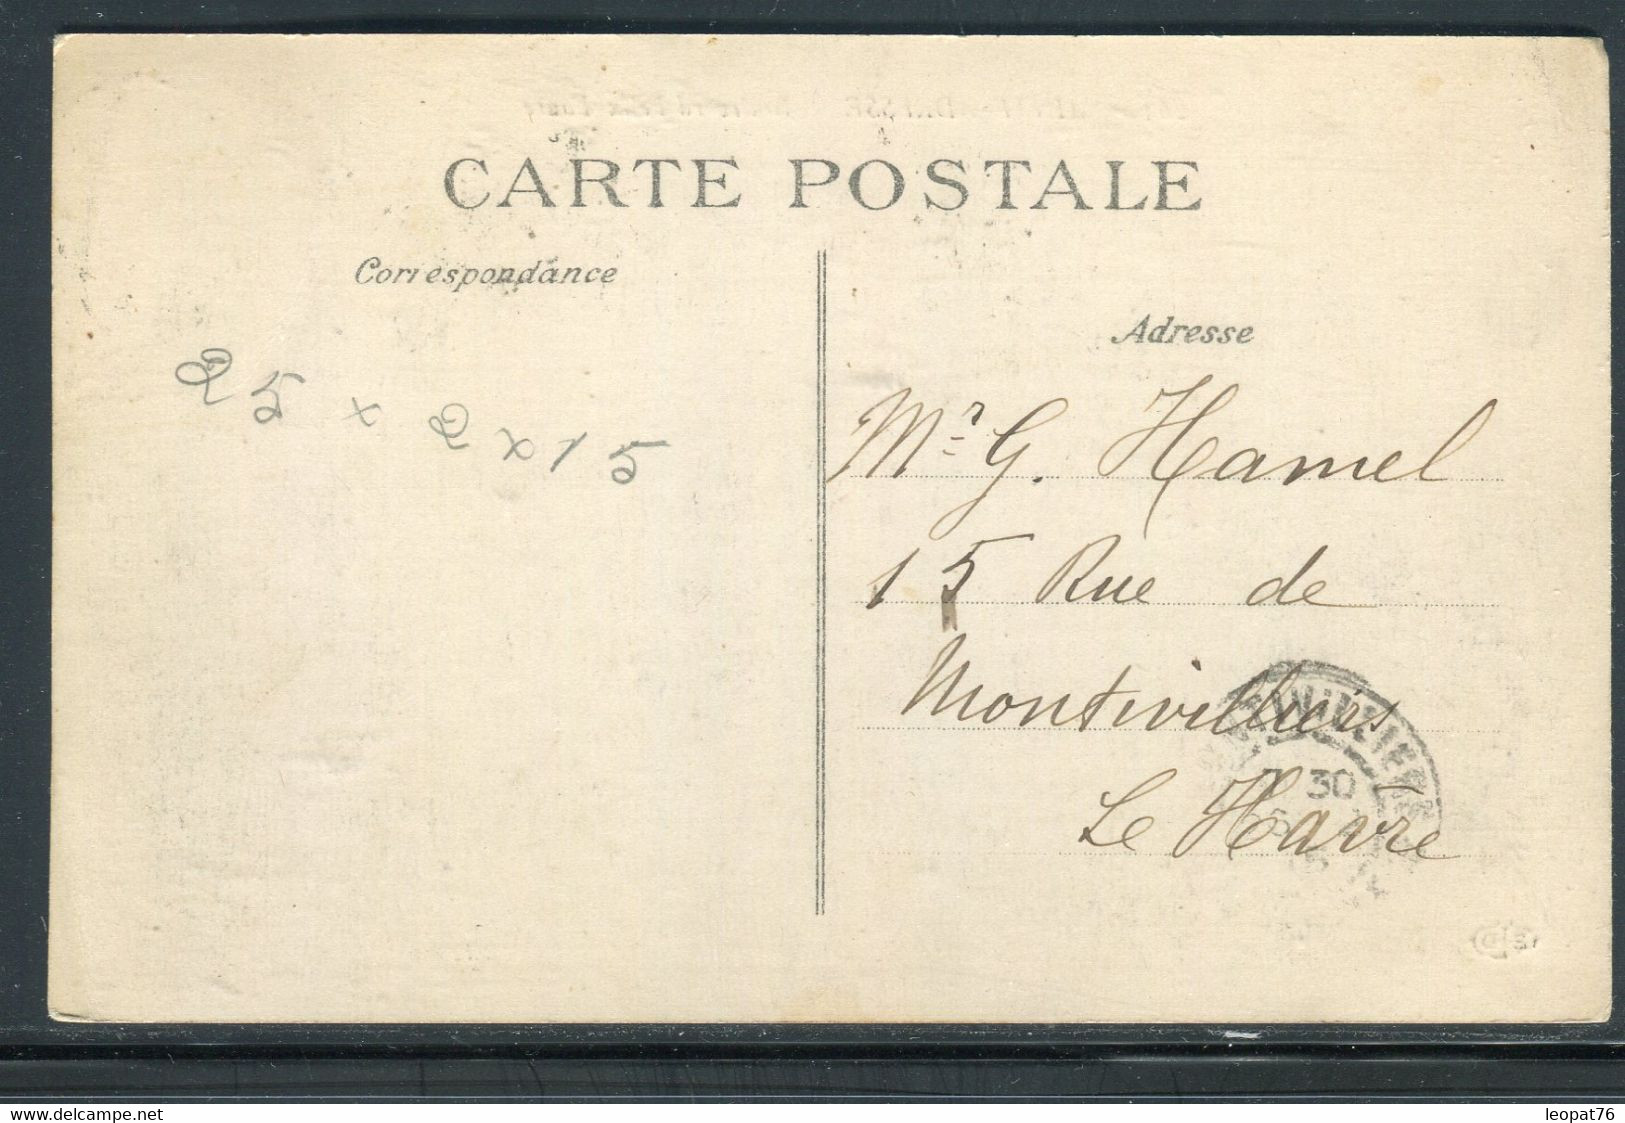 CARTE POSTALE
Correspondance
Adresse
25 x 2 x 15
Mr G. Hamel
15 Rue de
Montivilliers
Le Havre
30
www.delcampe.net
leopat76